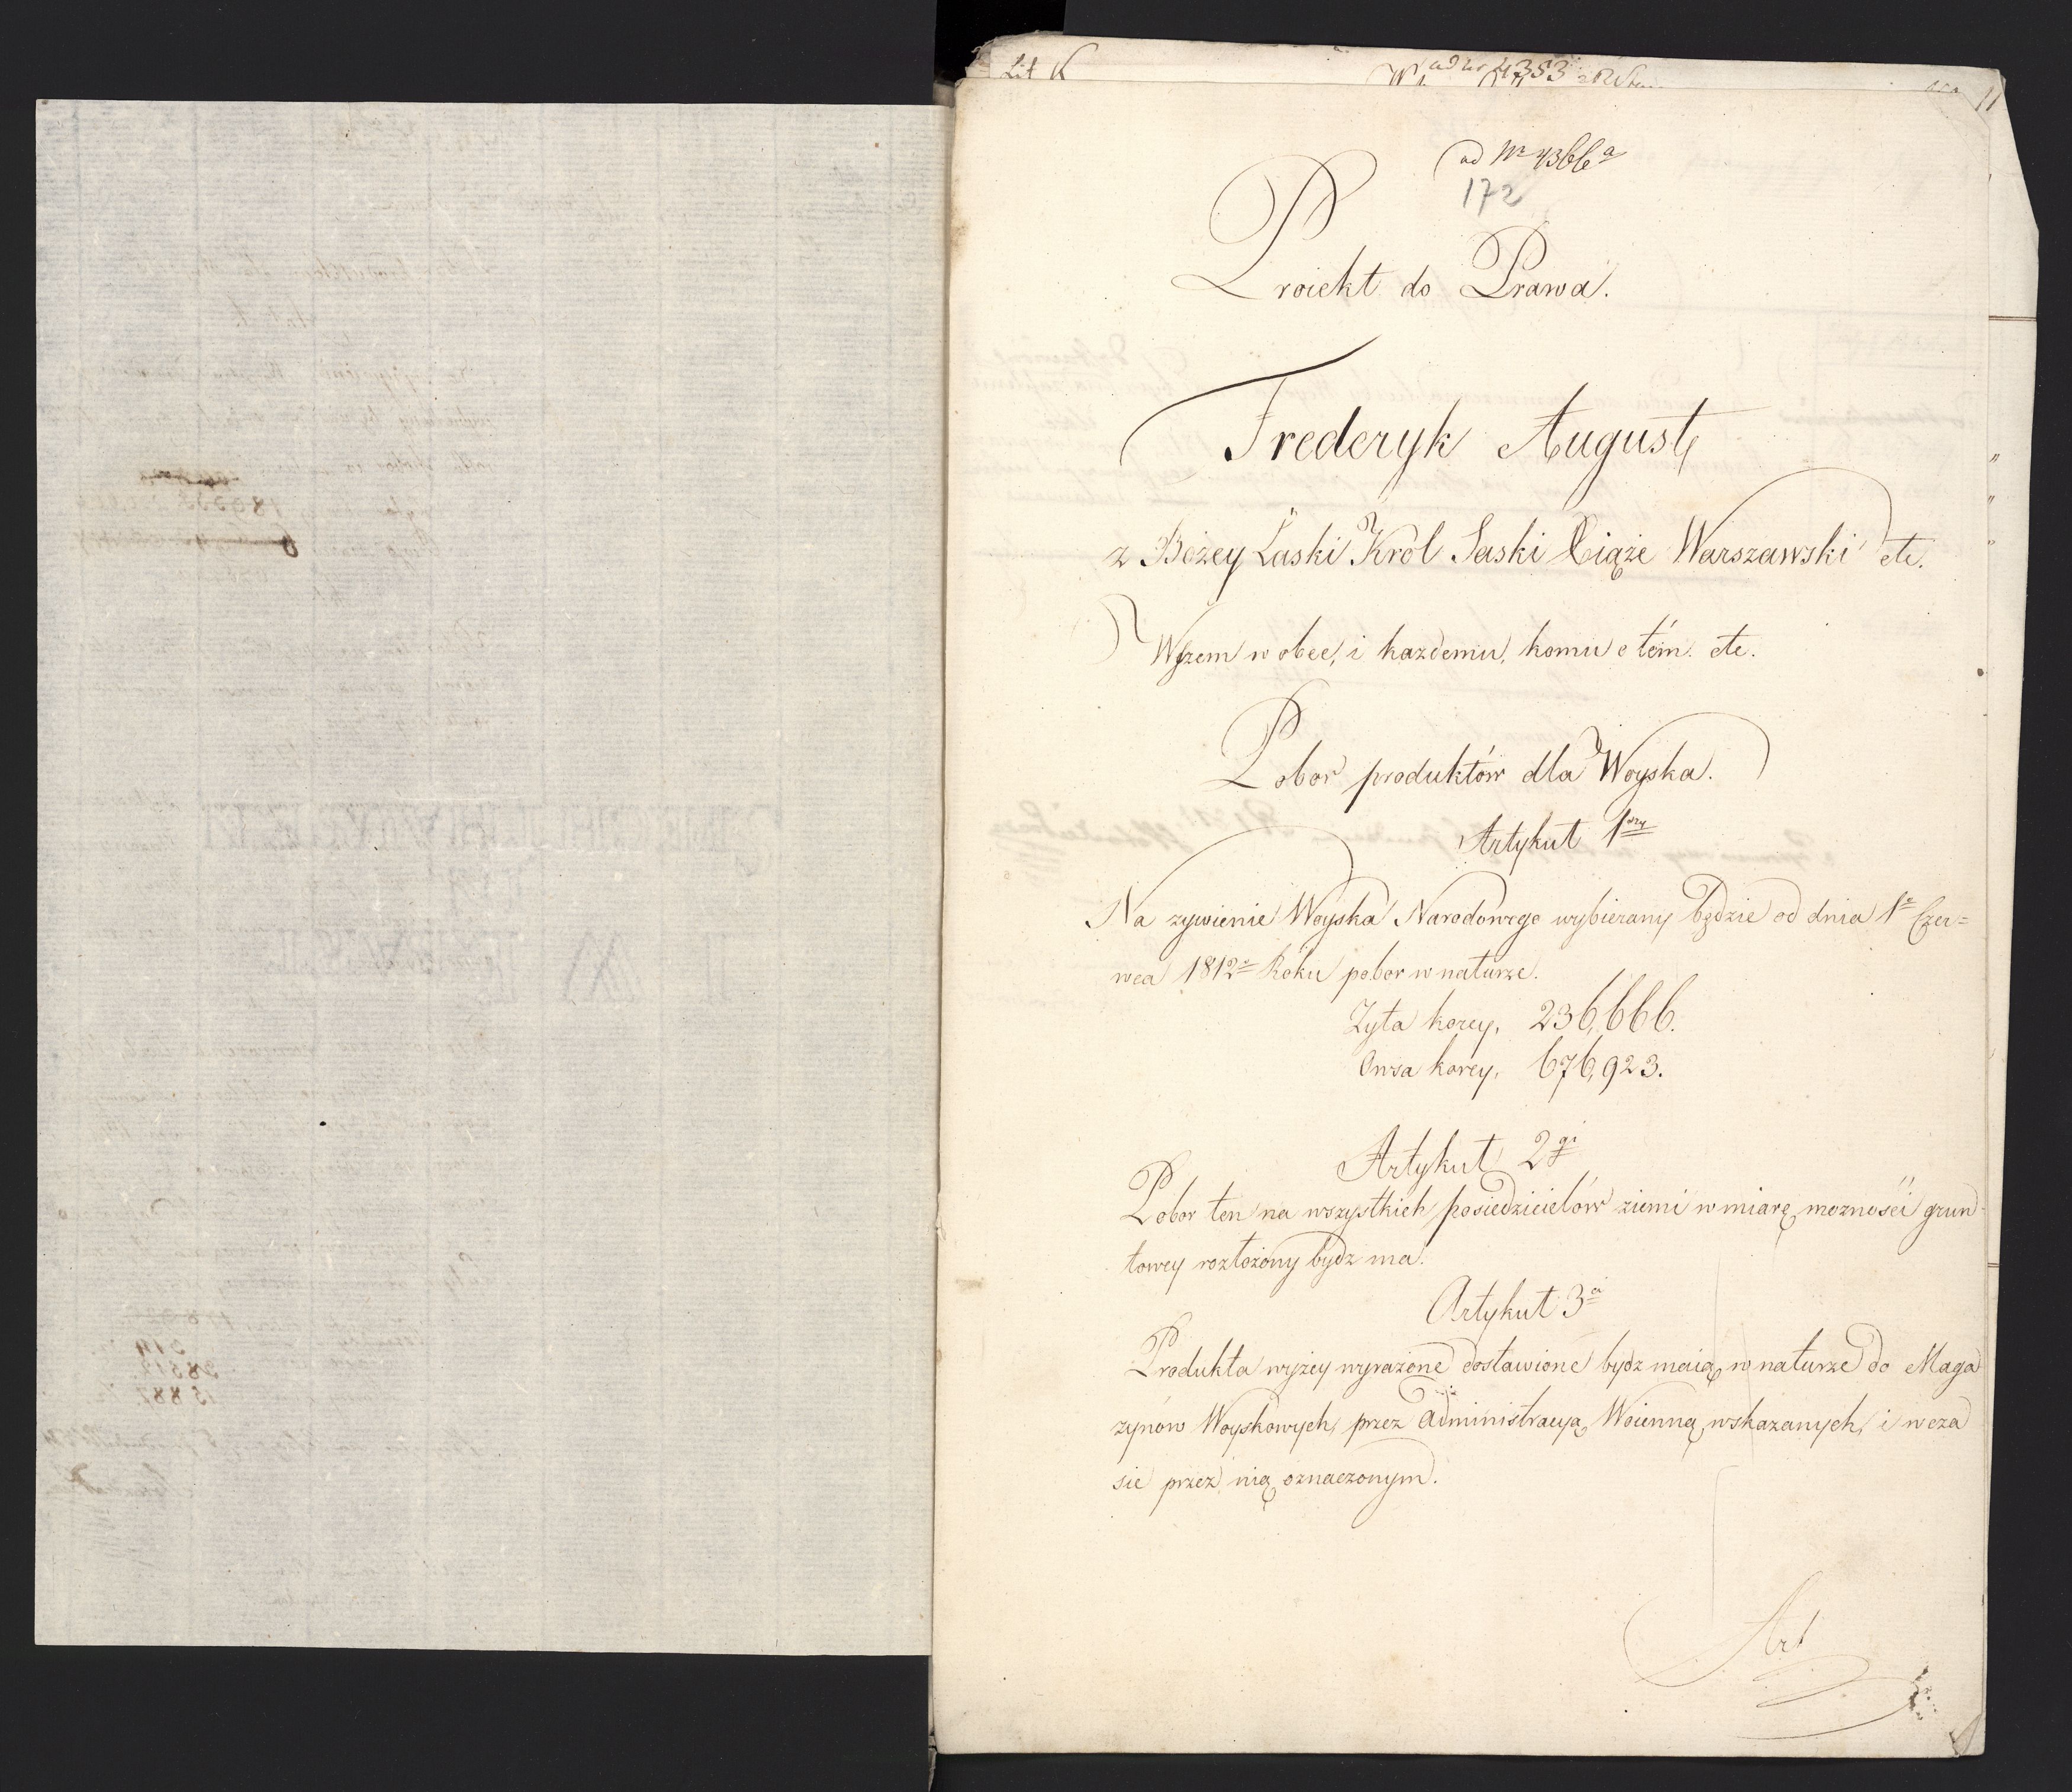 Lit K
ad nr 4353
ad Nr 4366 a
172
Proiekt do Prawa.
Frederyk August
z Bożey Łaski Krol Saski Xiąże Warszawski etc.
Wszem w obec, i kazdemu, komu o tém. etc.
Pobor produktów dla Woyska.
Artykuł 1szy
Na zywienie Woyska Narodowego wybierany będzie od dnia 1o Czer=
wca 1812o Roku pobor w naturze.
Zyta korcy, 236,666.
Owsa korcy, 676,923.
Artykuł 2gi
Pobor ten na wszystkich posiedzicielów ziemi w miarę mozności grun-
towey rozłożony bydz ma.
Artykuł 3ci
Produkta wyżey wyrażone dostawione bydz maią w naturze do Maga
zynów Woyskowych, przez Administracyą Woienną wskazanych, i w cza
sie przez nią oznaczonym.
Art